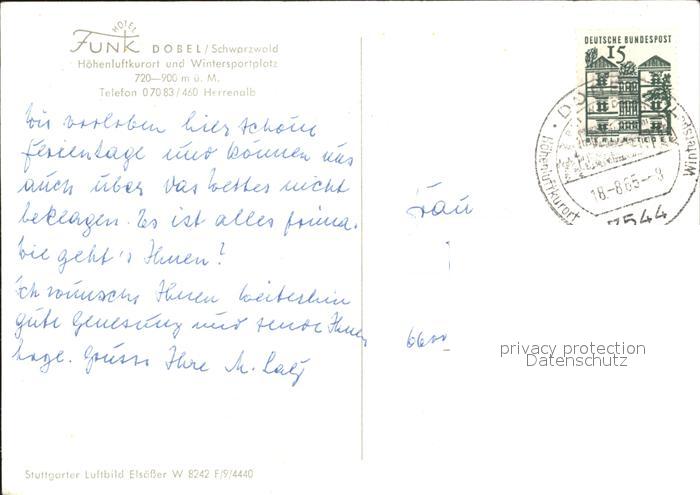 HOTEL
FUNK DOBEL/Schwarzwald
Höhenluftkurort und Wintersportplatz
720—900 m ü. M.
Telefon 07083/460 Herrenalb
DEUTSCHE BUNDESPOST
15
Höhenluftkurort
18.-8.65.-8
7544
Wir verleben hier schöne
Ferientage und können uns
auch über das Wetter nicht
beklagen. Es ist alles prima.
Wie geht's Ihnen?
Ich wünsche Ihnen weiterhin
gute Genesung und sende Ihnen
Grüsse Ihre M.
Frau
6600
privacy protection
Datenschutz
Stuttgarter Luftbild Elsäßer W 8242 F/9/4440